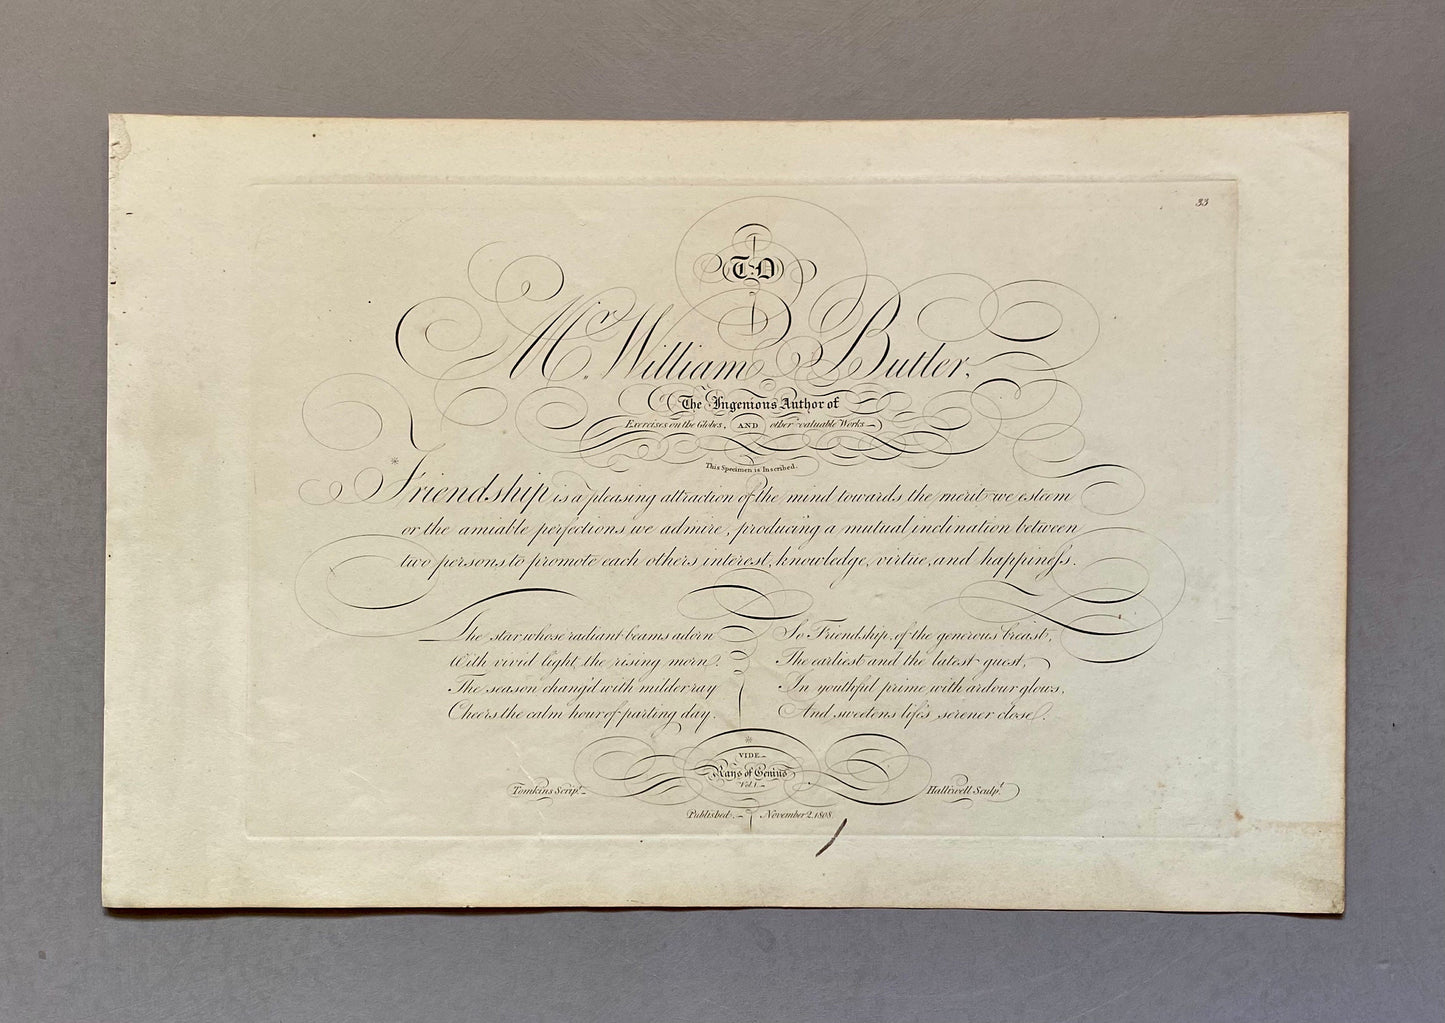 33
TO
Mr. William Butler,
The Ingenious Author of
Exercises on the Globes, AND other valuable Works
This Specimen is Inscribed.
* Friendship is a pleasing attraction of the mind towards the merit we esteem
or the amiable perfections we admire, producing a mutual inclination between
two persons to promote each others interest, knowledge, virtue, and happineſs.
The star whose radiant beams adorn
With vivid light the rising morn,
The season chang'd with milder ray
Cheers the calm hour of parting day.
So Friendship, of the generous breast,
The earliest and the latest guest,
In youthful prime with ardour glows,
And sweetens life's serener close.
*
VIDE
Rays of Genius
Vol. I.
Tomkins Scrip.t
Halliwell Sculp.t
Published November 2, 1808.